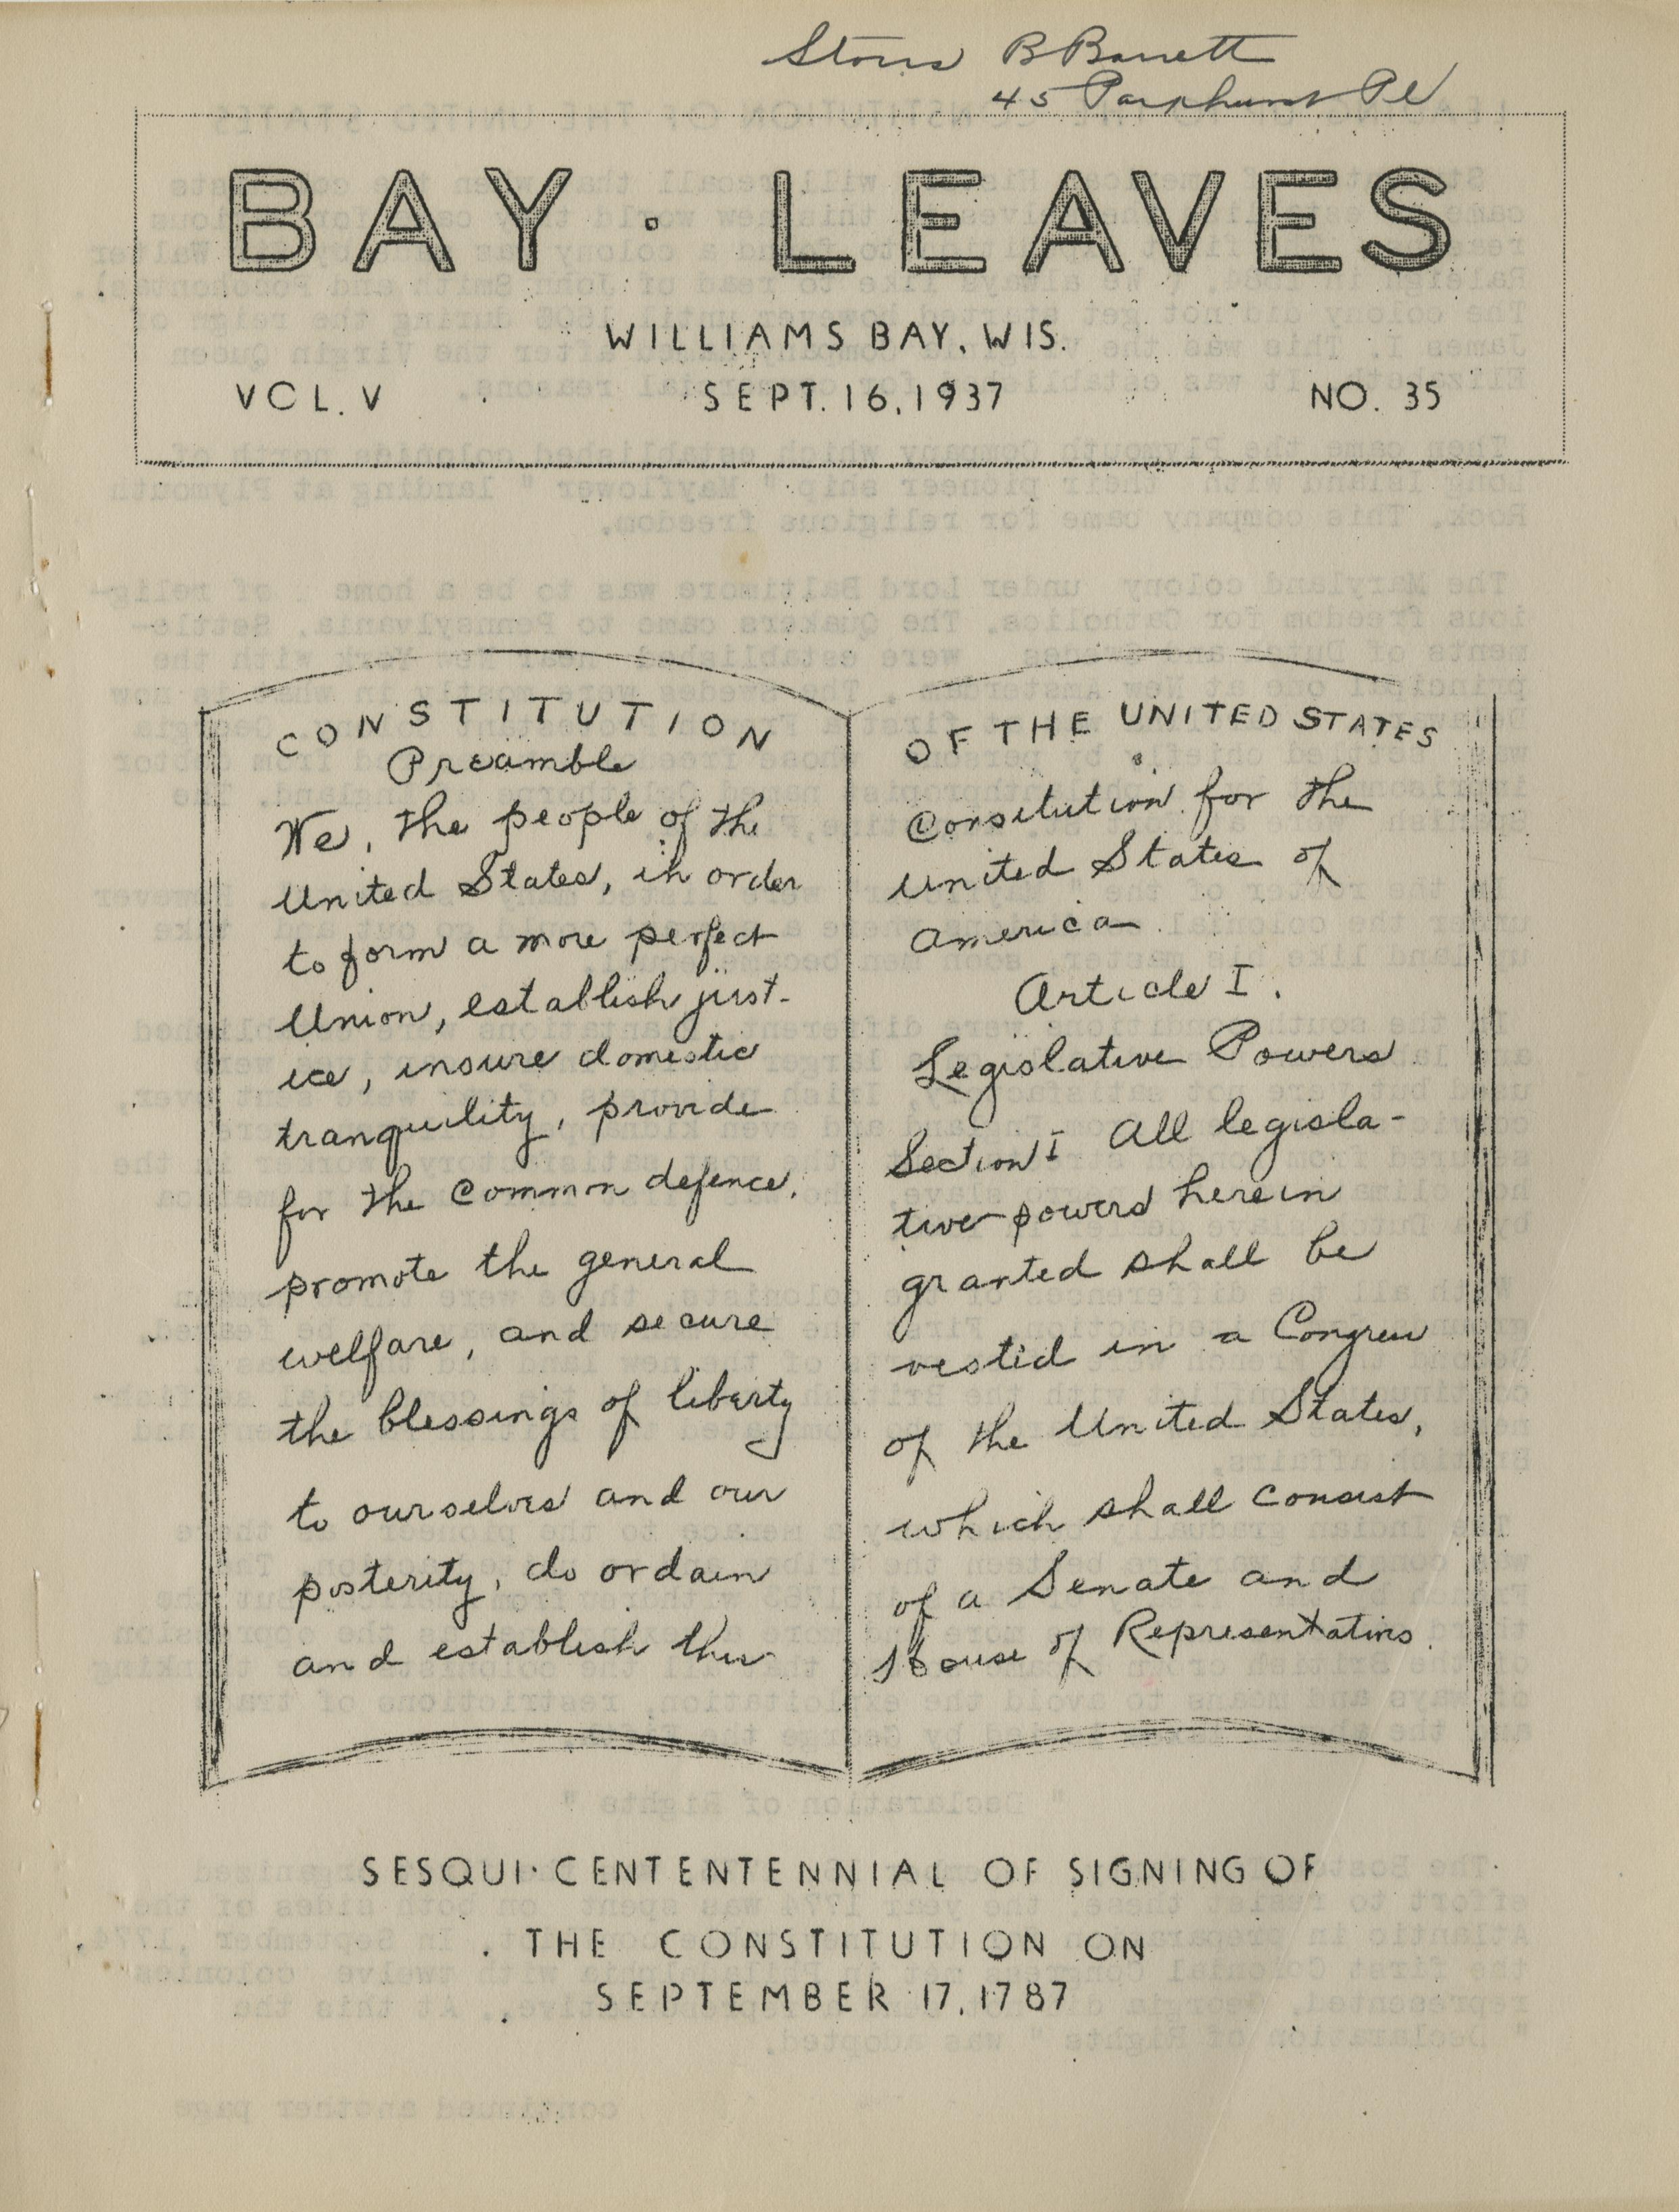 Storrs B Barrett
45 Parkhurst Pl
BAY · LEAVES
WILLIAMS BAY, WIS.
VOL. V SEPT. 16, 1937 NO. 35
CONSTITUTION
Preamble
We, the people of the
United States, in order
to form a more perfect
Union, establish just-
ice, insure domestic
tranquility, provide
for the common defence,
promote the general
welfare, and secure
the blessings of liberty
to ourselves and our
posterity, do ordain
and establish this
OF THE UNITED STATES
Consitution for the
United States of
America
Article I.
Legislative Powers
Section I All legisla-
tive powers herein
granted shall be
vested in a Congress
of the United States,
which shall consist
of a Senate and
House of Representatives.
SESQUI·CENTENTENNIAL OF SIGNING OF
THE CONSTITUTION ON
SEPTEMBER 17, 1787